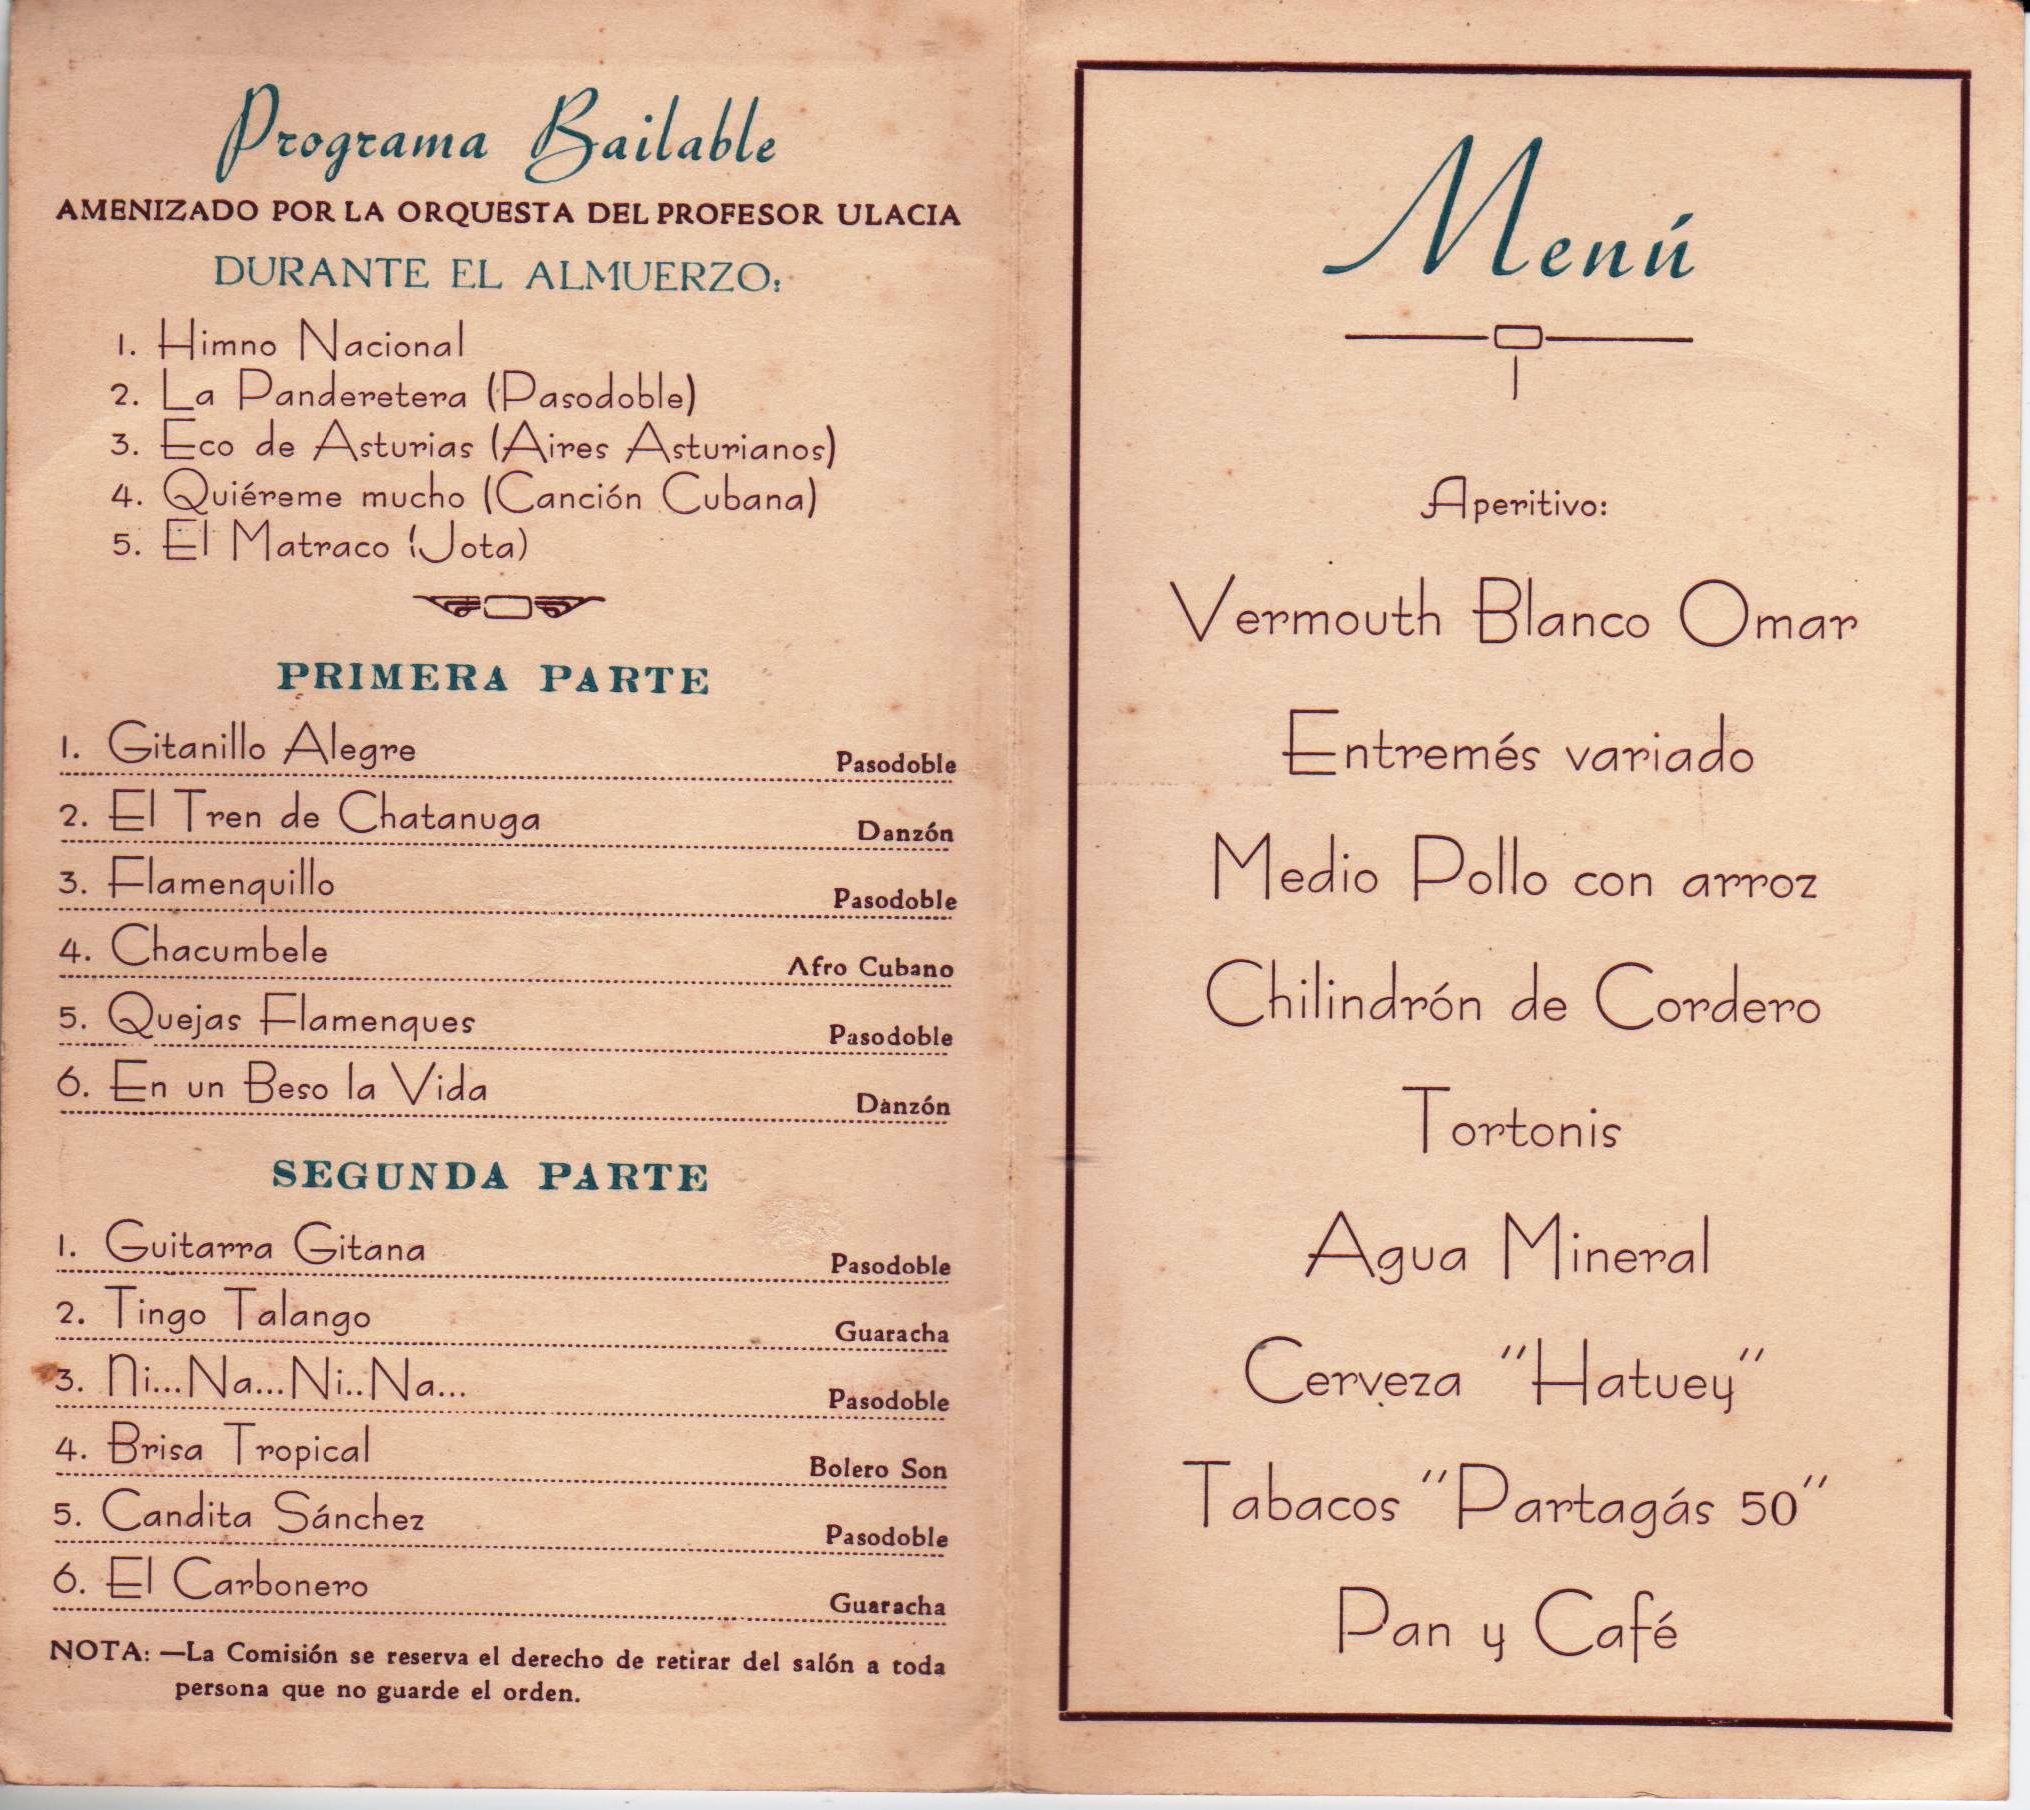 Programa Bailable
AMENIZADO POR LA ORQUESTA DEL PROFESOR ULACIA
DURANTE EL ALMUERZO:
1. Himno Nacional
2. La Panderetera (Pasodoble)
3. Eco de Asturias (Aires Asturianos)
4. Quiéreme mucho (Canción Cubana)
5. El Matraco (Jota)
PRIMERA PARTE
1. Gitanillo Alegre Pasodoble
2. El Tren de Chatanuga Danzón
3. Flamenquillo Pasodoble
4. Chacumbele Afro Cubano
5. Quejas Flamenques Pasodoble
6. En un Beso la Vida Danzón
SEGUNDA PARTE
1. Guitarra Gitana Pasodoble
2. Tingo Talango Guaracha
3. Ni...Na...Ni..Na... Pasodoble
4. Brisa Tropical Bolero Son
5. Candita Sánchez Pasodoble
6. El Carbonero Guaracha
NOTA: —La Comisión se reserva el derecho de retirar del salón a toda
persona que no guarde el orden.
Menú
Aperitivo:
Vermouth Blanco Omar
Entremés variado
Medio Pollo con arroz
Chilindrón de Cordero
Tortonis
Agua Mineral
Cerveza "Hatuey"
Tabacos "Partagás 50"
Pan y Café